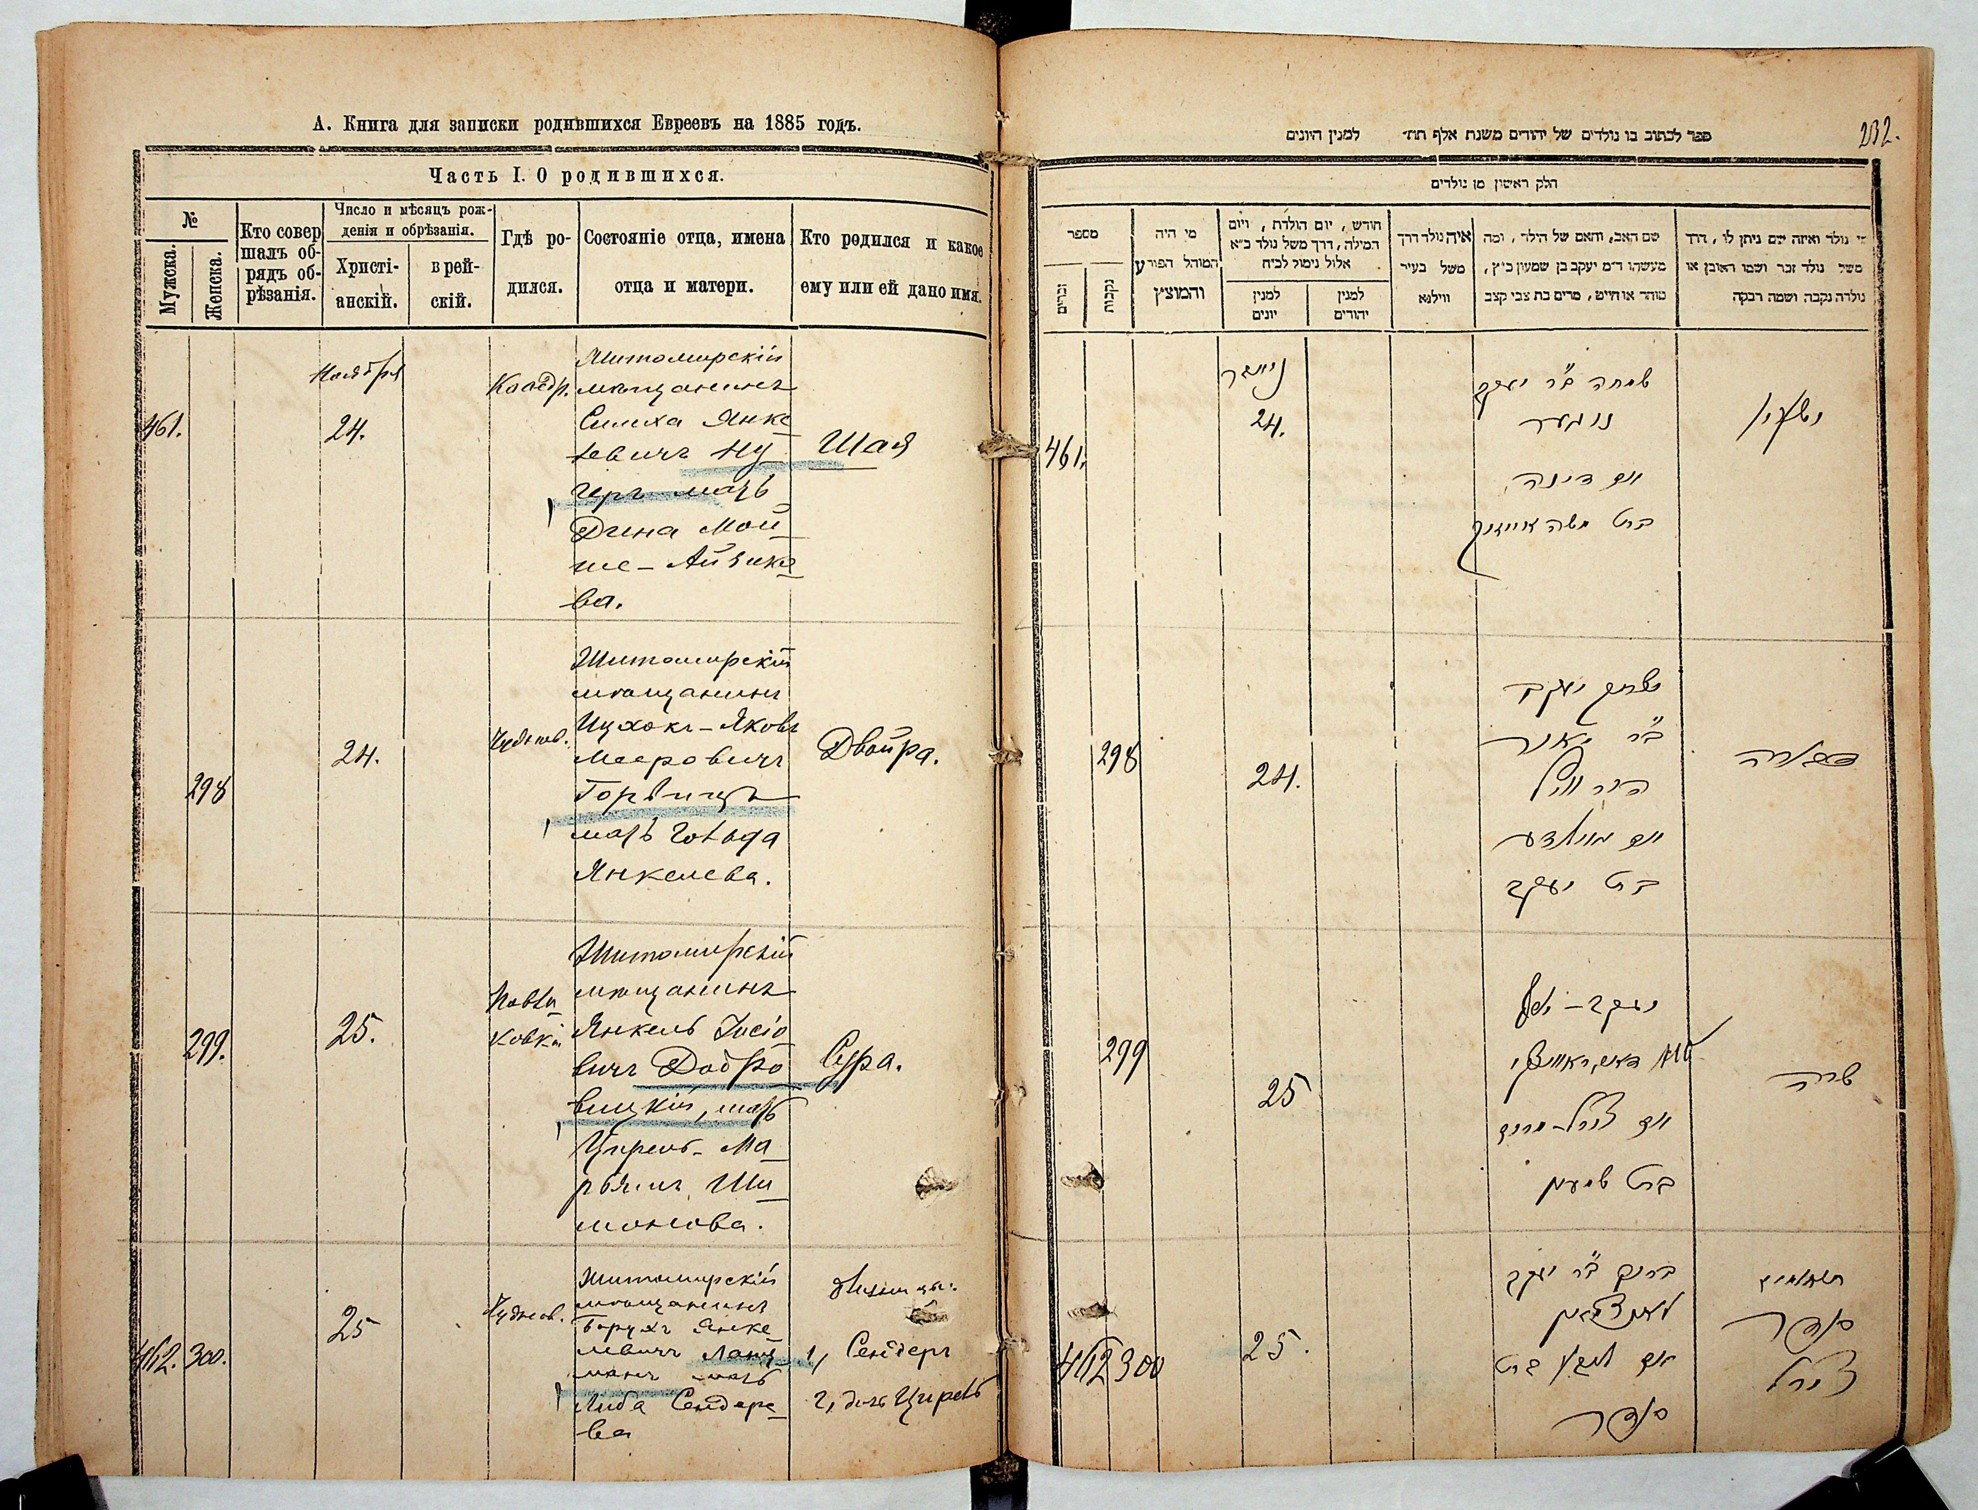 А. Книга для записки родившихся Евреевъ на 1885 годъ.
Часть I. О родившихся.
№
Мужска.
Женска.
Кто совер
шалъ об-
рядъ об-
рѣзанія.
Число и мѣсяцъ рож-
денія и обрѣзанія.
Христі-
анскій.
в рей-
скій.
Гдѣ ро-
дился.
Состояніе отца, имена
отца и матери.
Кто родился и какое
ему или ей дано имя.
461.
Ноября
24.
Житомирскій
мѣщанинъ
Симха Янке
левичъ Ну
геръ мать
Дина Мой
ше-Айзико
ва.
Шая
298
24.
Чуднов.
Житомирскій
мѣщанинъ
Ицхокъ-Яковъ
Мееровичъ
Горвицъ
мать Гольда
Янкелева.
Двойра.
299.
25.
Житомирскій
мѣщанинъ
Янкель Іосіо
вичъ Добро
вицкій, мать
Цирель-Ма
рьямъ Ши
монова.
Сура.
462. 300.
25
Чуднов.
Житомирскій
мѣщанинъ
Борухъ Янке
левичъ Ланц
манъ мать
Либа Сендеро
ва
1, Сендеръ
2, дочь Цирель
232.
ספר לכתוב בו נולדים של יהודים משנת אלף תת״ למנין היונים
חלק ראשון מן נולדים
מספר
זכרים
נקבות
מי היה
המוהל הפורע
והמוצץ
חודש, יום הולדת, ויום
המילה, דרך משל נולד כ״א
אלול נימול לכ״ח
למנין
יונים
למנין
יהודים
איה נולד דרך
משל בעיר
ווילנא
שם האב, והאם של הילד, ומה
מעשהו ד״מ יעקב בן שמעון כ״ץ,
סוחר או חייט, מרים בת צבי קצב
מי נולד ואיזה שם ניתן לו, דרך
משל נולד זכר ושמו ראובן או
נולדה נקבה ושמה רבקה
461.
24.
שמחה ב״ר יעקב
נוגער
ואם דינה
ברט משה אייזיק
ישעיה
298
24.
יצחק יעקב
ב״ר מאיר
הורוויץ
ואם גאלדע
ברט יעקב
299
25
יעקב-יוסף
ואם צירל-מרים
ברט שימען
שרה
462 300
25.
ברוך ב״ר יעקב
לאנצמאן
ואם ליבע ברט
סענדר
תאומים
סענדר
צירל